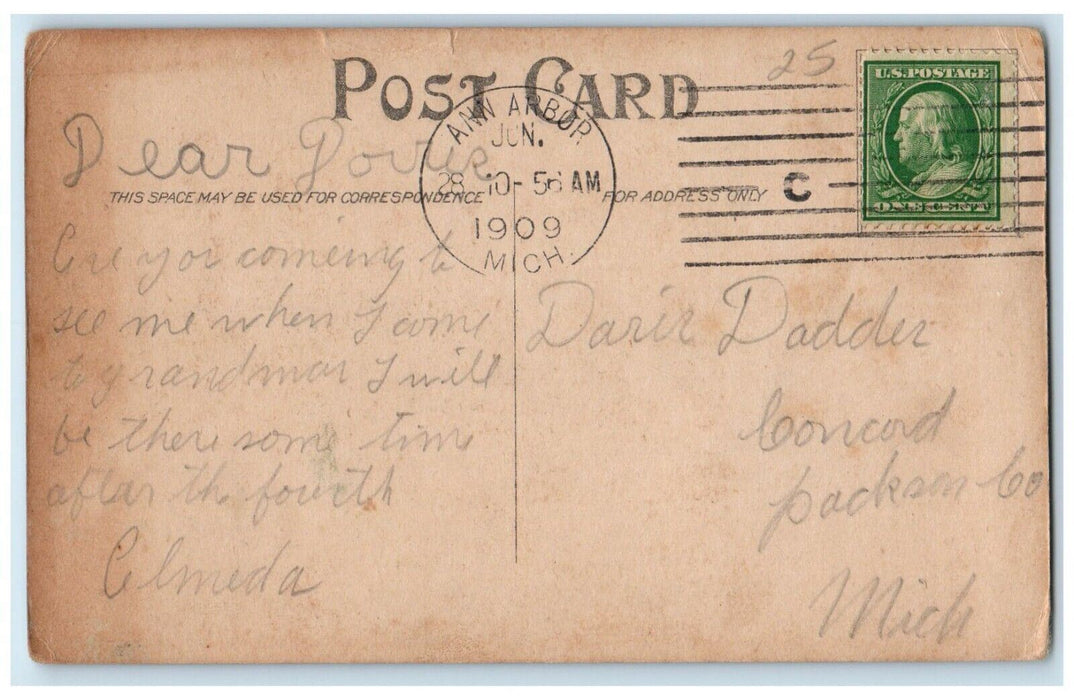 POST CARD
25
U.S. POSTAGE
ONE CENT
ANN ARBOR
JUN.
28 10-56 AM
1909
MICH.
C
THIS SPACE MAY BE USED FOR CORRESPONDENCE
FOR ADDRESS ONLY
Dear Dorris
Are you comeing to
see me when I come
to grandmas I will
be there some time
after the fourth
Almeda
Daris Dadder
Concord
Jackson Co
Mich